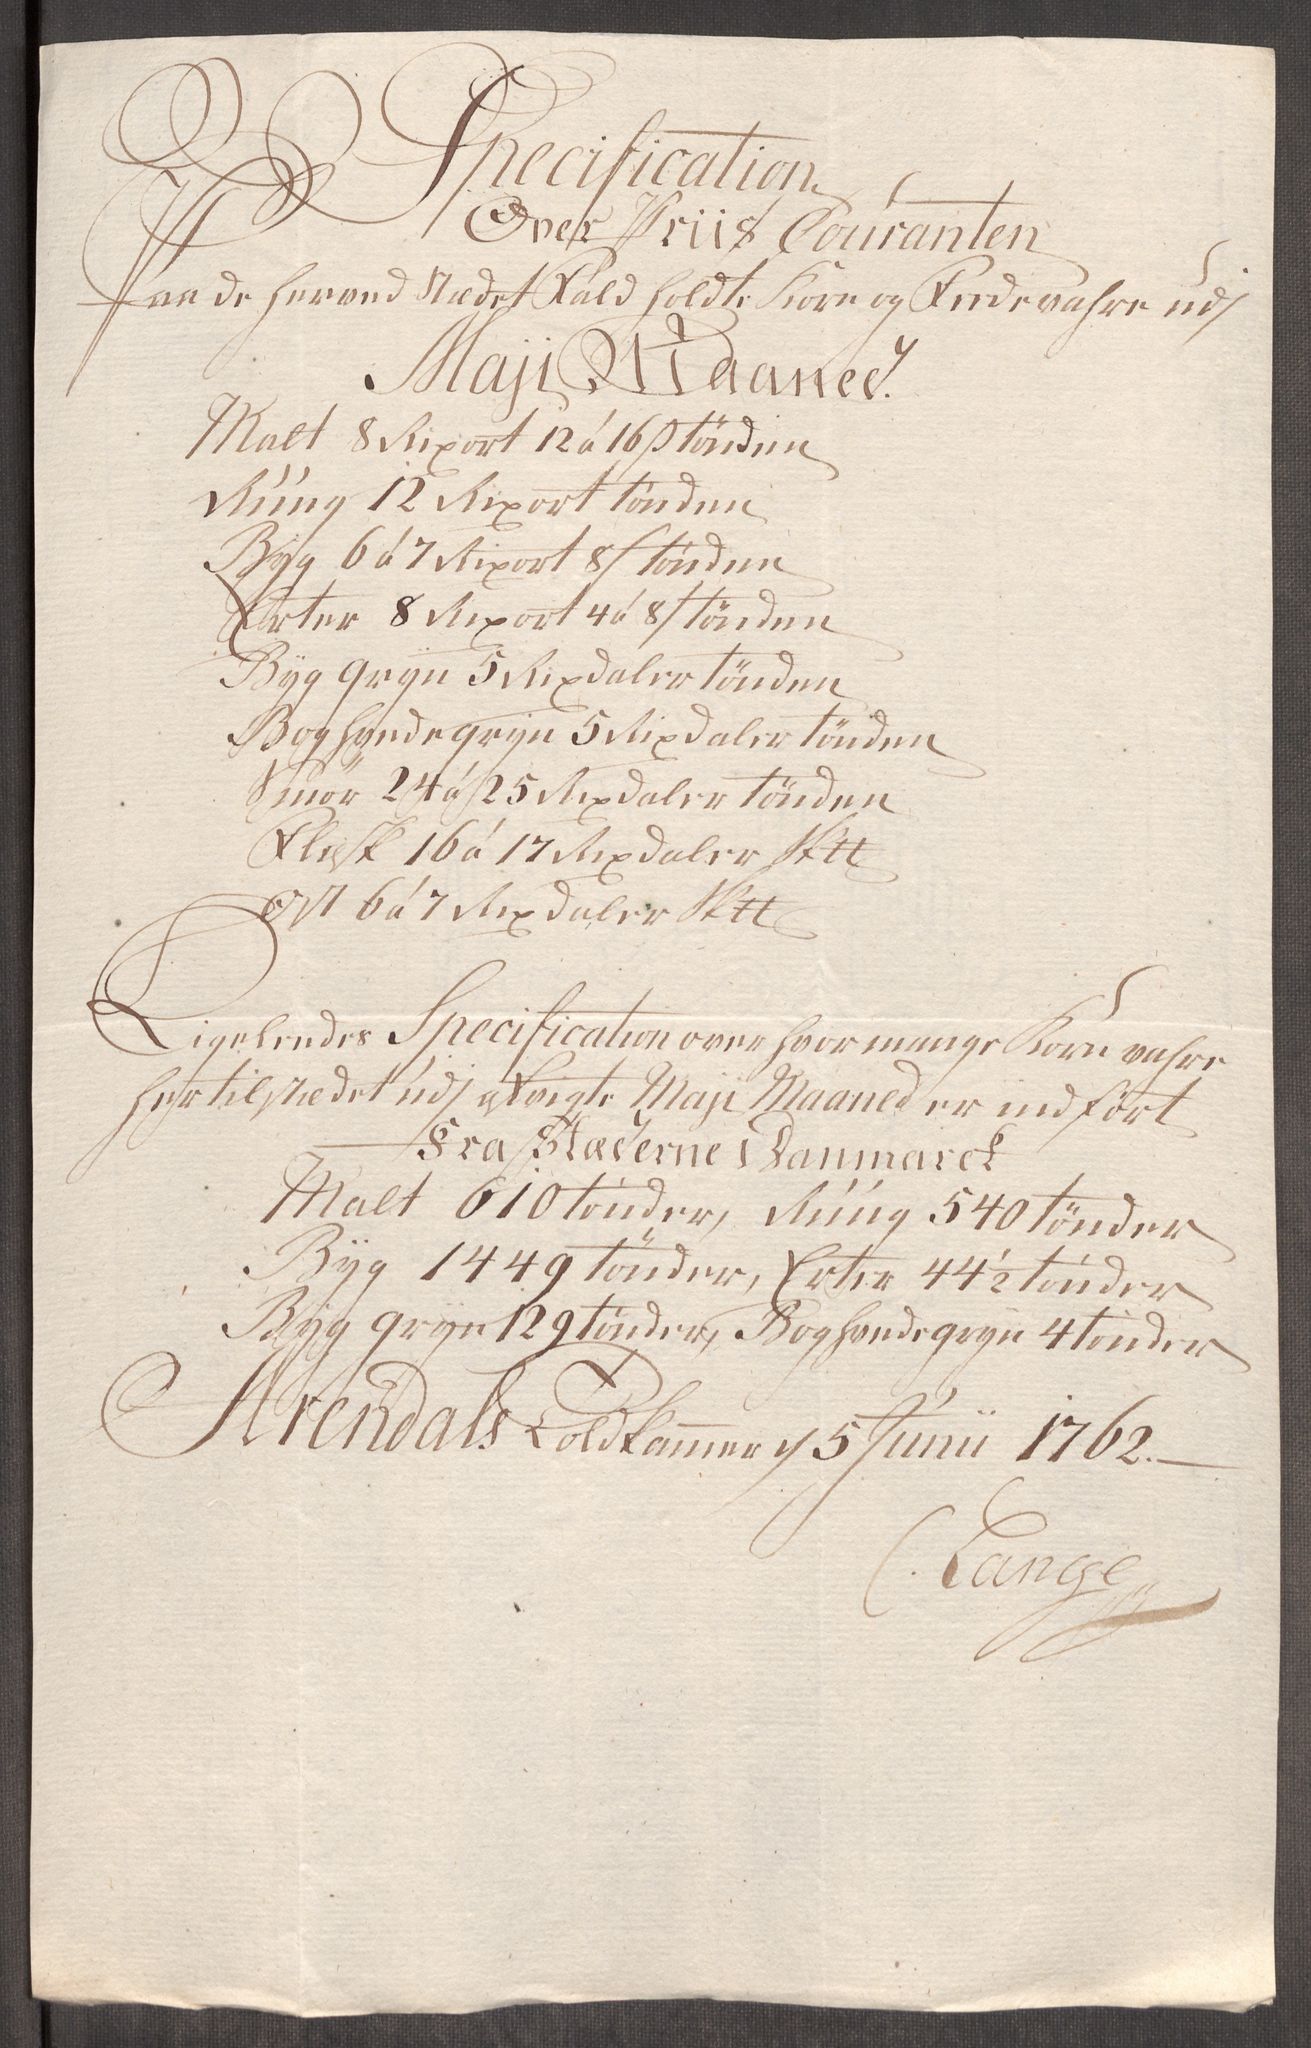 Specification
Over Priis Couranten
Paa de herved Stædet Fald holdte Korn og Fedevahre udj
Maji Maaned.
Malt 8 Rixort 12 á 16 s tönden
Rúúg 12 Rixort tönden
Byg 6 á 7 Rixort 8 s tönden
Erter 8 Rixort 4 á 8 s tönden
Byg gryn 5 Rixdaler tönden
Boghvedegryn 5 Rixdaler tönden
Smör 24 á 25 Rixdaler tönden
Flesk 16 á 17 Rixdaler
Ost 6 á 7 Rixdaler
Ligeledes Specification over hvor mange Korn vahre
her til stædet údj Maji Maaned er indført
Fra Stæderne i Danmarck
Malt 610 tønder, Rúúg 540 tønder
Byg 1449 tønder, Erter 44½ tønder
Byg gryn 129 tønder, Boghvedegryn 4 tønder
Arendals Toldkammer d 5 Junii 1762.
C. Lange